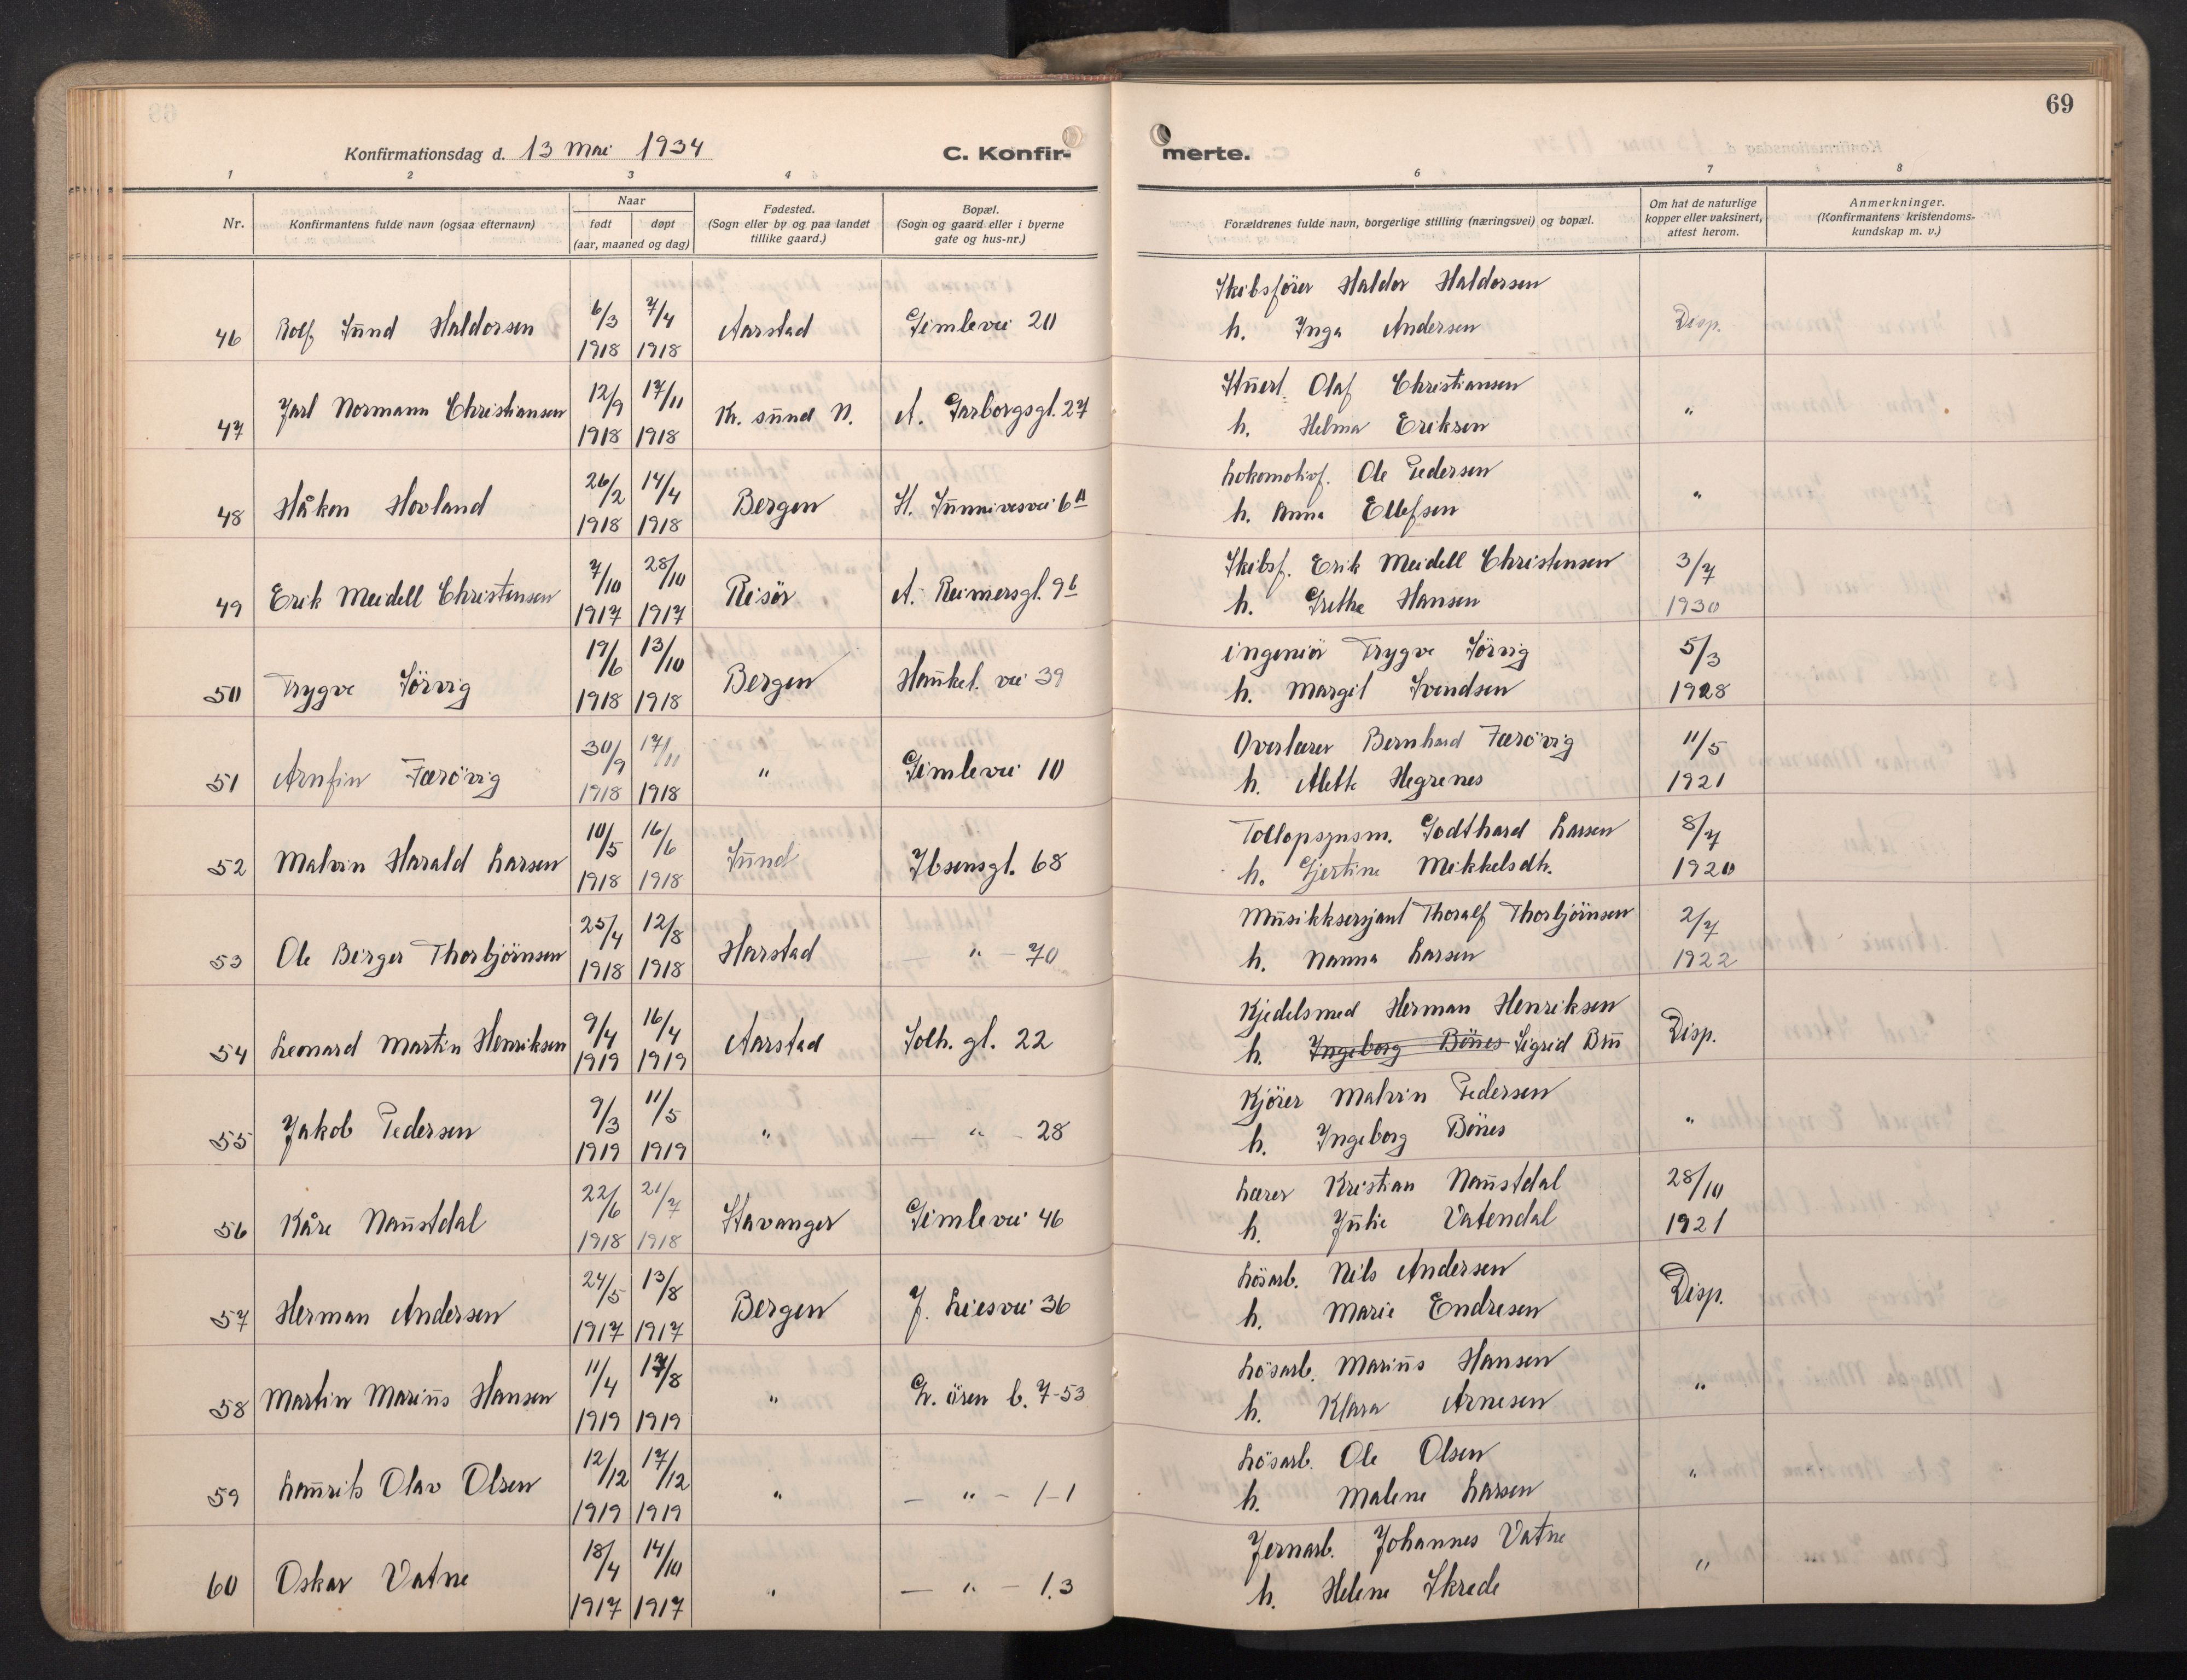 69
Konfirmationsdag d. 13 Mai 1934
C. Konfir-
merte.
1 2 3 4 6 7 8
Nr.
Konfirmantens fulde navn (ogsaa efternavn)
Naar
født døpt
(aar, maaned og dag)
Fødested.
(Sogn eller by og paa landet
tillike gaard.)
Bopæl.
(Sogn og gaard eller i byerne
gate og hus-nr.)
Forældrenes fulde navn, borgerlige stilling (næringsvei) og bopæl.
Om hat de naturlige
kopper eller vaksinert,
attest herom.
Anmerkninger.
(Konfirmantens kristendoms-
kundskap m. v.)
Skibsfører Haldor Haldorsen
46 Rolf Sund Haldorsen 6/3 7/4 Aarstad Gimlevei 20
1918 1918
h. Inga Andersen Disp.
Stuert. Olaf Christiansen
47 Jarl Normann Christiansen 12/9 17/11 Kr. sund N. A. Garborgsgt. 27
1918 1918
h. Helma Eriksen "
Lokomotivf. Ole Pedersen
48 Håkon Hovland 26/2 14/4 Bergen St. Sunnivesvei 6A
1918 1918
h. Anna Ellefsen "
Skibsf. Erik Meidell Christensen 3/7
49 Erik Meidell Christensen 7/10 28/10 Risör A. Reimersgt. 9b
1917 1917
h. Grethe Hansen 1930
ingeniör Trygve Sörvig 5/3
50 Trygve Sörvig 19/6 13/10 Bergen Haukel. vei 39
1918 1918
h. Margit Svendsen 1928
Overlærer Bernhard Færövig 11/5
51 Arnfin Færövig 30/9 17/11 " Gimlevei 10
1918 1918
h. Alette Hegrenes 1921
Tollopsynsm. Godthard Larsen 8/7
52 Malvin Harald Larsen 10/5 16/6 Sund Ibsensgt. 68
1918 1918
h. Gjertine Mikkelsdtr. 1920
Musikksersjant Thoralf Thorbjörnsen 2/7
53 Ole Birger Thorbjörnsen 25/4 12/8 Harstad — " — 70
1918 1918
h. Nanna Larsen 1922
Kjedelsmed Herman Henriksen
54 Leonard Martin Henriksen 9/4 16/4 Aarstad Solh. gt. 22
1919 1919
h. Ingeborg Bönes Sigrid Bru Disp.
Kjörer Malvin Pedersen
55 Jakob Pedersen 9/3 11/5 " — " — 28
1919 1919
h. Ingeborg Bönes "
Lærer Kristian Naustdal 28/10
56 Kåre Naustdal 22/6 21/7 Stavanger Gimlevei 46
1918 1918
h. Julie Vatendal 1921
Lösarb. Nils Andersen
57 Herman Andersen 24/5 13/8 Bergen J. Liesvei 36
1917 1917
h. Marie Endresen Disp.
Lösarb. Marius Hansen
58 Martin Marius Hansen 11/4 17/8 " L. ören b. 7-53
1919 1919
h. Klara Arnesen "
Lösarb. Ole Olsen
59 Lauritz Olav Olsen 12/12 17/12 " — " — 1-1
1919 1919
h. Malene Larsen "
Jernarb. Johannes Vatne
60 Oskar Vatne 18/4 14/10 " — " — 1.3
1917 1917
h. Helene Skrede "